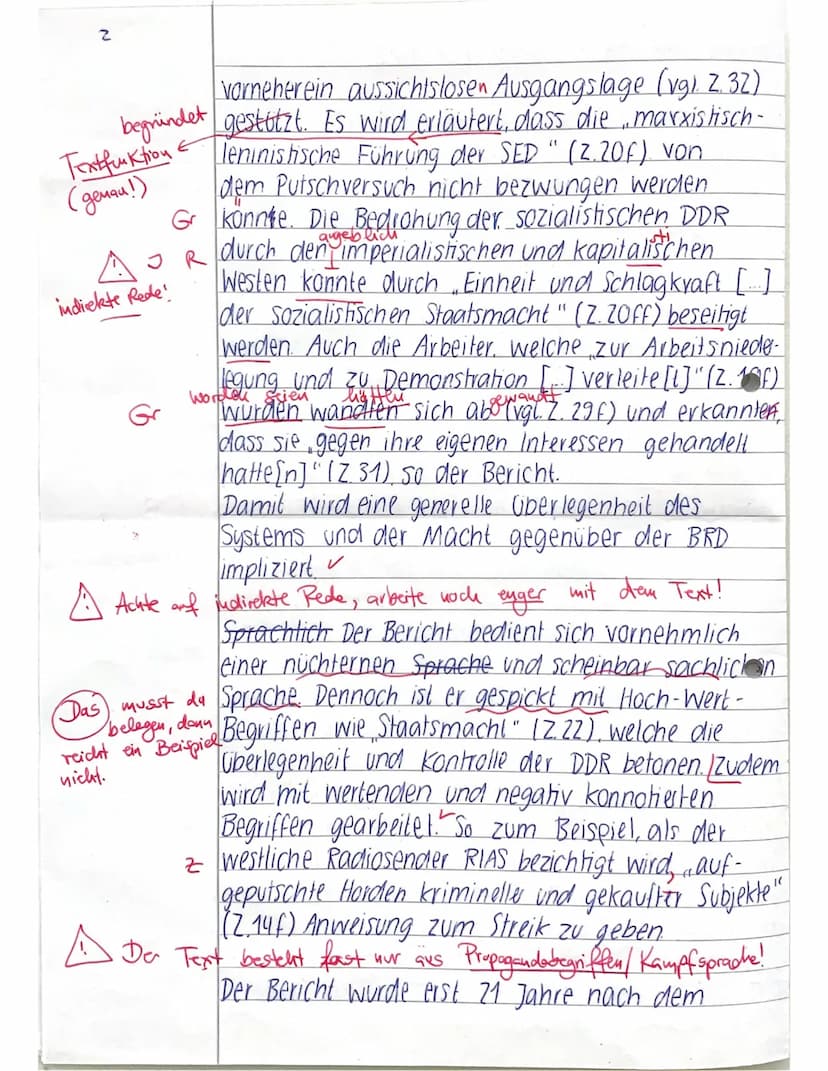 2
vorneherein aussichtslosen Ausgangslage (vgl. Z. 32)
begründet
gestützt. Es wird erläutert, dass die „marxistisch-
Textfunktion
leninistische Führung der SED" (Z. 20f) von
(genau!)
dem Putschversuch nicht bezwungen werden
Gr
könnte. Die Bedrohung der sozialistischen DDR
angeblich
sti
J R
durch den imperialistischen und kapitalischen
indirekte Rede!
Westen könnte durch „Einheit und Schlagkraft [...]
der sozialistischen Staatsmacht" (Z. 20ff) beseitigt
werden. Auch die Arbeiter, welche „zur Arbeitsniede-
legung und zu Demonstration [...] verleite[t]" (Z. f)
worden seien hätten gewandt
Gr
wurden wandten sich ab (vgl. Z. 29f) und erkannten,
dass sie „gegen ihre eigenen Interessen gehandelt
hatte[n]" (Z. 31), so der Bericht.
Damit wird eine generelle Überlegenheit des
Systems und der Macht gegenüber der BRD
impliziert. ✓
Achte auf indirekte Rede, arbeite noch enger mit dem Text!
Sprachlich Der Bericht bedient sich vornehmlich
einer nüchternen Sprache und scheinbar sachlichen
Das musst du belegen, dann reicht ein Beispiel nicht.
Sprache. Dennoch ist er gespickt mit Hoch-Wert-
Begriffen wie „Staatsmacht" (Z. 22), welche die
Überlegenheit und Kontrolle der DDR betonen. Zudem
wird mit wertenden und negativ konnotierten
Begriffen gearbeitet. ✓ So zum Beispiel, als der
Z
westliche Radiosender RIAS bezichtigt wird, „auf-
geputschte Horden krimineller und gekaufter Subjekte"
(Z. 14f) Anweisung zum Streik zu geben.
Der Text besteht fast nur aus Propagandabegriffen/Kampfsprache!
Der Bericht wurde erst 21 Jahre nach dem